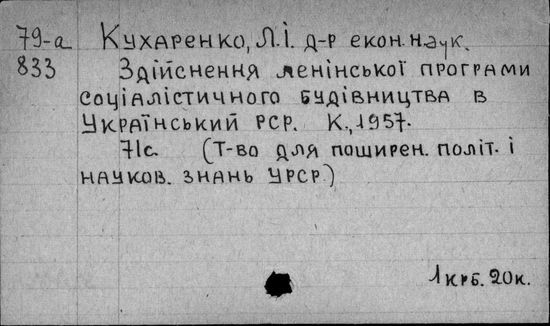 79-а Кухаренко, Л.І. д-р екон. наук.
833 Здійснення ленінської програми
соціалістичного будівництва в
Український РСР. К., 1957.
71с. (Т-во для поширен. політ. і
науков. знань УРСР.)
1 крб. 20к.